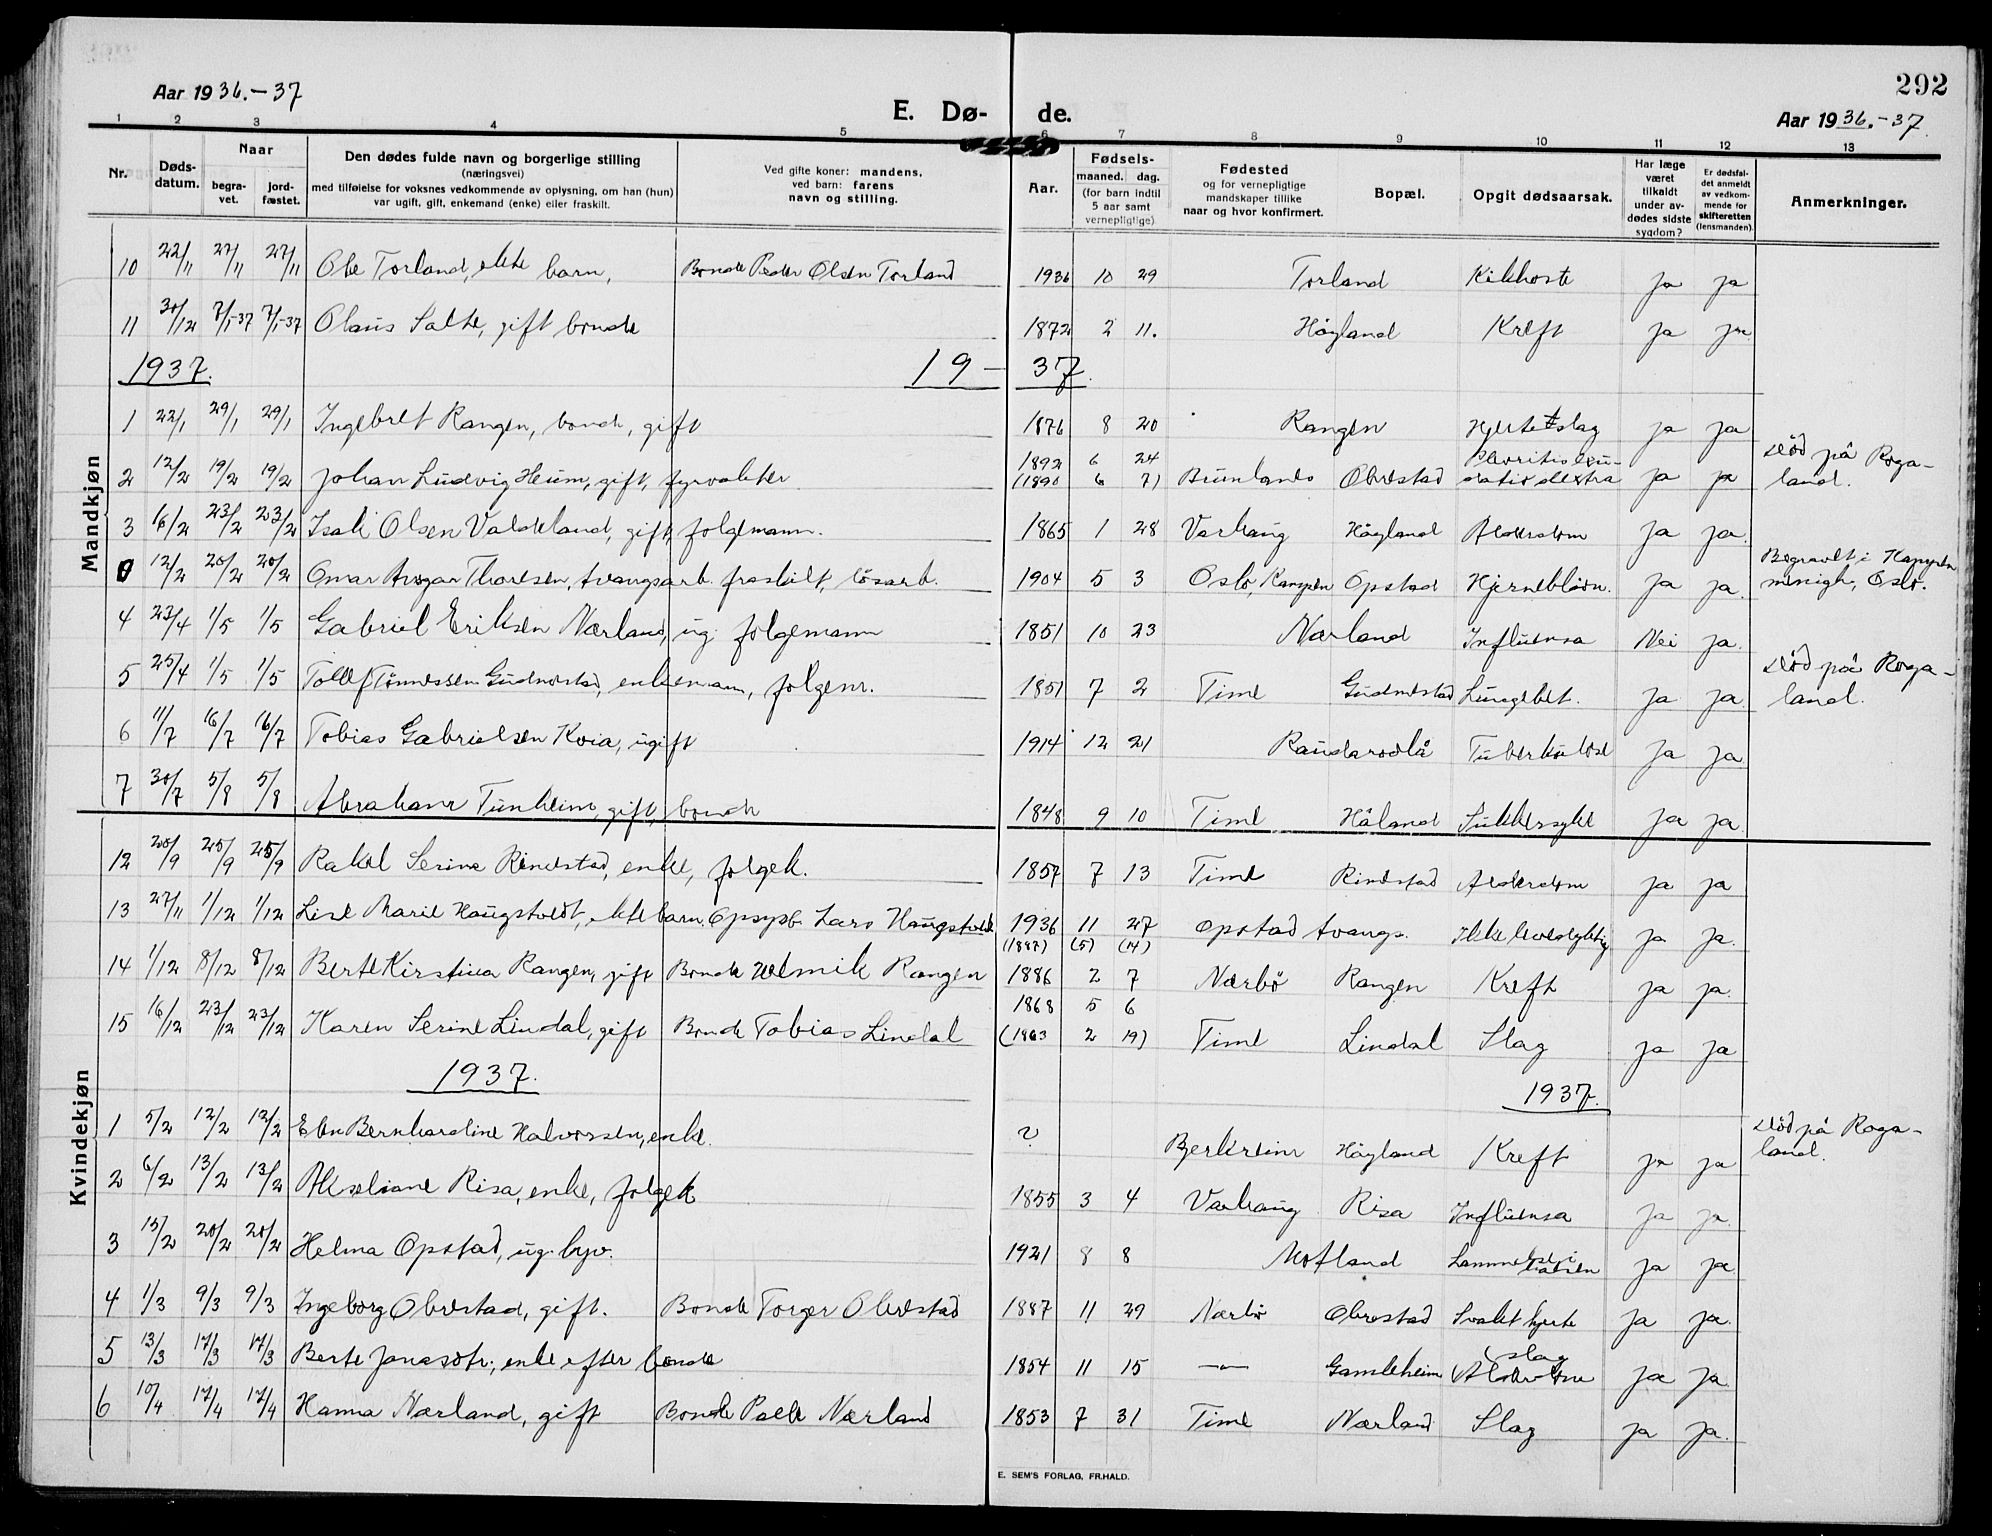 292
Aar 1936.-37
E. Dø- de.
Aar 1936.-37.
1 2 3 4 5 6 7 8 9 10 11 12 13
Nr. Døds-datum. Naar begra-vet. jord-fæstet. Den dødes fulde navn og borgerlige stilling (næringsvei) med tilføielse for voksnes vedkommende av oplysning, om han (hun) var ugift, gift, enkemand (enke) eller fraskilt. Ved gifte koner: mandens, ved barn: farens navn og stilling. Aar. Fødsels- maaned. dag. (for barn indtil 5 aar samt vernepligtige) Fødested og for vernepligtige mandskaper tillike naar og hvor konfirmert. Bopæl. Opgit dødsaarsak. Har læge været tilkaldt under av-dødes sidste sygdom? Er dødsfal-det anmeldt av vedkom-mende for skifteretten (lensmanden). Anmerkninger.
Mandkjøn
10 22/11 27/11 27/11 Ole Torland, ekte barn, Bonde Peder Olsen Torland 1936 10 29 Torland Kikhoste Ja ja
11 30/12 7/1-37 7/1-37 Olaus Salte, gift bonde 1872 2 11. Høyland Kreft Ja ja
1937. 19- 37.
1 22/1 29/1 29/1 Ingebret Rangen, bonde, gift 1876 8 20 Rangen Hjerteslag ja ja
2 12/2 19/2 19/2 Johan Ludvig Heum, gift, fyrvokter 1892 6 24 (1890 6 7) Brunlanes Obrestad ja ja død på Roga-land.
3 16/2 23/2 23/2 Isak Olsen Valdeland, gift, folgemann. 1865 1 28 Varhaug Høyland Alderdom Ja ja.
0 12/2 20/2 20/2 Omar Thoresen, tvangsarb. fraskilt, løsarb. 1904 5 3 Oslo, Kampen Opstad Hjerneblødn. Ja ja. Begravet i Kampen menigh, Oslo.
4 23/4 1/5 1/5 Gabriel Eriksen Nærland, ug. folgemann 1851 10 23 Nærland Influensa Nei ja.
5 25/4 1/5 1/5 Tollef Tønnessen Gudmestad, enkemann, folgem. 1851 7 2 Time Gudmestad Lungebet. Ja ja. død på Roga-land.
6 11/7 16/7 16/7 Tobias Gabrielsen Kvia, ugift 1914 12 21 Raudarodlå Tuberkulose Ja ja
7 30/7 5/8 5/8 Abraham Tunheim, gift, bonde 1848 9 10 Time Håland Sukkersyke Ja ja.
Kvindekjøn
12 20/9 25/9 25/9 Rakel Serine Rindestad, enke, folgek. 1857 7 13 Time Rinestad Alderdom Ja ja
13 27/11 1/12 1/12 Lise Marie Haugstvedt, ekte barn. Opsynsb. Lars Haugstvedt 1936 11 27 Opstad tvangs. Ikke levedyktig Ja ja.
14 1/12 8/12 8/12 Berte Kirstina Rangen, gift Bonde Rangen (1887) (5) (14) 1886 2 7 Nærbø Rangen Kreft ja ja.
15 16/12 23/12 23/12 Karen Serine Lindal, gift Bonde Tobias Lindal 1868 5 6 (1863 2 19) Time Lindal Slag ja ja
1937. 1937.
1 5/2 12/2 12/2 Elen Bernhardine Halvorsen, enke. ? Bjerkreim Høyland Kreft ja ja død på Roga-land.
2 6/2 13/2 13/2 Akseliane Risa, enke, folgek 1855 3 4 Varhaug Risa Influensa Ja ja.
3 15/2 20/2 20/2 Helma Opstad, ug. 1921 8 8 Motland Lammelse i Ja ja
4 1/3 9/3 9/3 Ingeborg Obrestad, gift. Bonde Torger Obrestad 1887 11 29 Nærbø Obrestad Svakt hjerte Ja ja.
5 13/3 17/3 17/3 Berte Jonasdtr., enke efter bonde 1854 11 15 —"— Gamleheim slag Alderdom Ja ja.
6 10/4 17/4 17/4 Hanna Nærland, gift Bonde Nærland 1853 7 31 Time Nærland Slag Ja ja.
E. SEM'S FORLAG, FR.HALD.